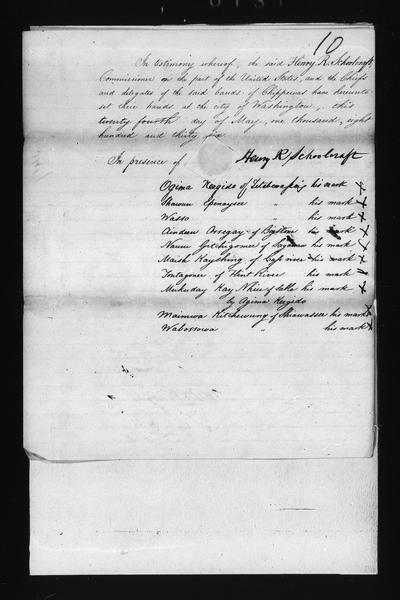 10
In testimony whereof, the said Henry R. Schoolcraft
Commissioner on the part of the United States, and the Chiefs
and delegates of the said bands of Chippewas have hereunto
set their hands at the city of Washington, this
twenty fourth day of May, one thousand, eight
hundred and thirty six.
In presence of, Henry R Schoolcraft
Ogima Keegido of his mark x
Shawun Epenaysee " his mark x
Wasso " his mark x
Aindau his mark x
Naum Gitchigomee of his mark x
Maish Kaystring of his mark x
Tontagonee of Flint River his mark x
Mukuday his mark x
by Ogima Kegido
Mainwa Kitchewung of Shiawassee his mark x
Wabossowa " his mark x